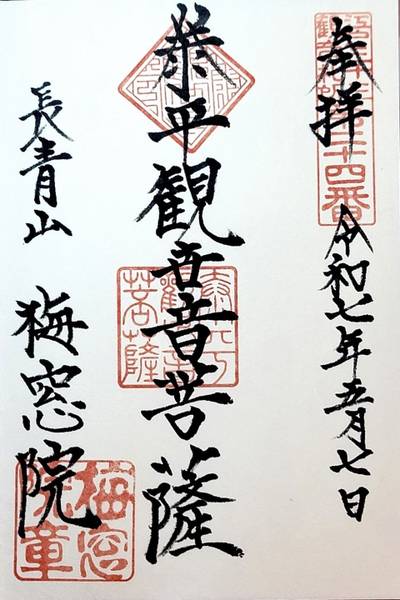 二十四番
奉拝 令和七年五月七日
泰平観世音菩薩
長青山 梅窓院
梅窓院章